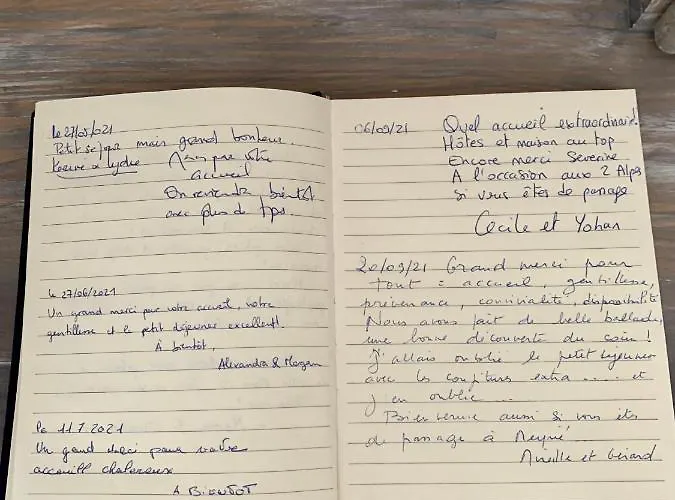 le 27/05/2021
Petit séjour mais grand bonheur.
& Lydie Merci pour votre
accueil
On reviendra bientôt
avec plus de tps.
le 27/06/2021
Un grand merci pour votre accueil, votre
gentillesse et le petit déjeuner excellent.
À bientôt,
Alexandra & Morgan
le 11.7.2021
Un grand merci pour votre
accueill chaleureux
A BIENTOT
06/09/21 Quel accueil extraordinaire!
Hôtes et maison au top
Encore merci Severine
A l'occasion aux 2 Alpes
si vous êtes de passage
Cecile et Yohan
20/09/21 Grand merci pour
tout : accueil, gentillesse,
prévenance, convivialité, disponibilité
Nous avons fait de belle ballade,
une bonne découverte du coin !
J'allais oublié le petit déjeuner
avec les confitures extra .... et
j'en oublie ...
Bienvenue aussi si vous êtes
de passage à
Mireille et Gérard